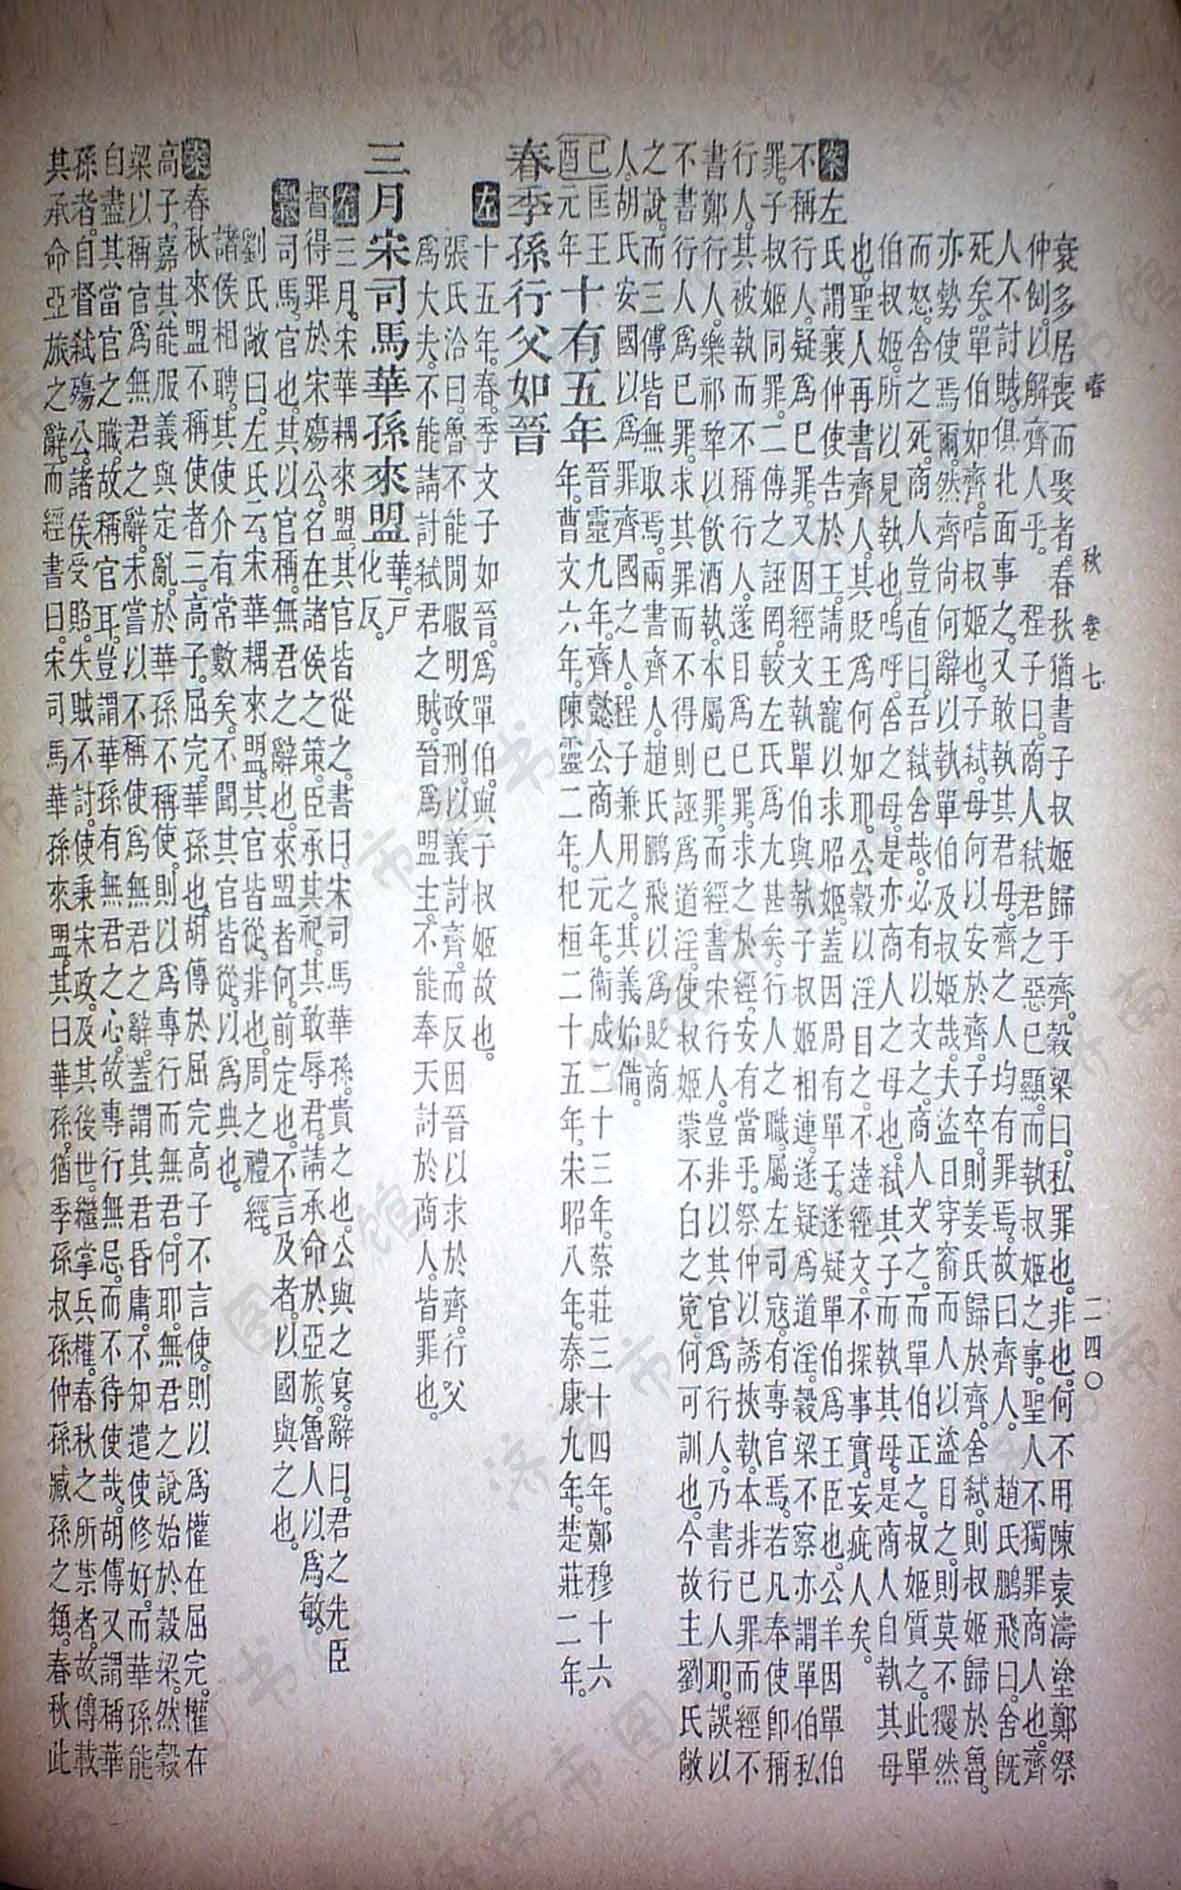 春　秋　卷七　二四〇
衰多居喪而娶者。春秋猶書子叔姬歸于齊。穀梁曰。私罪也。非也。何不用陳袁濤塗鄭祭
仲例。以解齊人乎。程子曰。商人弒君之惡已顯。而執叔姬之事。聖人不獨罪商人也。齊
人不討賊。俱北面事之。又敢執其君母。齊之人均有罪焉。故曰齊人。趙氏鵬飛曰。舍旣
死矣。單伯如齊。唁叔姬也。子弒。母何以安於齊。子卒。則姜氏歸於齊。舍弒。則叔姬歸於魯。
亦勢使焉爾。然齊尚何辭以執單伯及叔姬哉。夫盜日穿窬而人以盜目之。則莫不然
而怒。舍之死。商人豈直曰。吾弒舍哉。必有以文之。商人文之。而單伯正之。叔姬質之。此單
伯叔姬。所以見執也。嗚呼。舍之母。是亦商人之母也。弒其子而執其母。是商人自執其母
也。聖人再書齊人。其貶爲何如耶。公穀以淫目之。不達經文。不探事實。妄疵人矣。
案左氏謂襄仲使告於王。請王寵以求昭姬。蓋因周有單子。遂疑單伯爲王臣也。公羊因單伯
不稱行人。疑爲已罪。又因經文執單伯與執子叔姬相連。遂疑爲道淫。穀梁不察。亦謂單伯私
罪。子叔姬同罪。二傳之誣罔。較左氏爲尤甚矣。行人之職。屬左司寇。有專官焉。若凡奉使卽稱
行人。其被執而不稱行人。遂目爲已罪。求之於經。安有當乎。祭仲以誘挾執。本非已罪而經不
書鄭行人。樂祁犂以飲酒執。本屬已罪。而經書宋行人。豈非以其官爲行人。乃書行人耶。誤以
不書行人爲已罪。求其罪而不得。則誣爲道淫。使叔姬蒙不白之冤。何可訓也。今故主劉氏敞
之說。而三傳皆無取焉。兩書齊人。趙氏鵬飛以爲貶商
人。胡氏安國以爲罪齊國之人。程子兼用之。其義始備。
己酉匡王元年十有五年晉靈九年。齊懿公商人元年。衞成二十三年。蔡莊三十四年。鄭穆十六
年。曹文六年。陳靈二年。杞桓二十五年。宋昭八年。秦康九年。楚莊二年。
春季孫行父如晉
左十五年。春。季文子如晉。爲單伯。與子叔姬故也。
張氏洽曰。魯不能閒暇明政刑。以義討齊。而反因晉以求於齊。行父
爲大夫。不能請討弒君之賊。晉爲盟主。不能奉天討於商人。皆罪也。
三月宋司馬華孫來盟華。戶化反。
左三月。宋華耦來盟。其官皆從之。書曰。宋司馬華孫。貴之也。公與之宴。辭曰。君之先臣
督得罪於宋殤公。名在諸侯之策。臣承其祀。其敢辱君。請承命於亞旅。魯人以爲敏。
穀司馬。官也。其以官稱。無君之辭也。來盟者何。前定也。不言及者。以國與之也。
劉氏敞曰。左氏云。宋華耦來盟。其官皆從。非也。周之禮經。
諸侯相聘。其使介有常數矣。不聞其官皆從。以爲典也。
案春秋來盟不稱使者三。高子。屈完。華孫也。胡傳於屈完高子不言使。則以爲權在屈完。權在
高子。嘉其能服義與定亂。於華孫不稱使。則以爲專行而無君。何耶。無君之說。始於穀梁。然穀
梁以稱官爲無君之辭。未嘗以不稱使爲無君之辭。蓋謂其君昏庸。不知遣使修好。而華孫能
自盡其當官之職。故稱官耳。豈謂華孫有無君之心。故專行無忌。而不待使哉。胡傳又謂稱華
孫者。自督弒殤公。諸侯受賂。失賊不討。使秉宋政。及其後世。繼掌兵權。春秋之所禁者。故傳載
其承命亞旅之辭。而經書曰。宋司馬華孫來盟。其曰華孫。猶季孫叔孫仲孫臧孫之類。春秋此